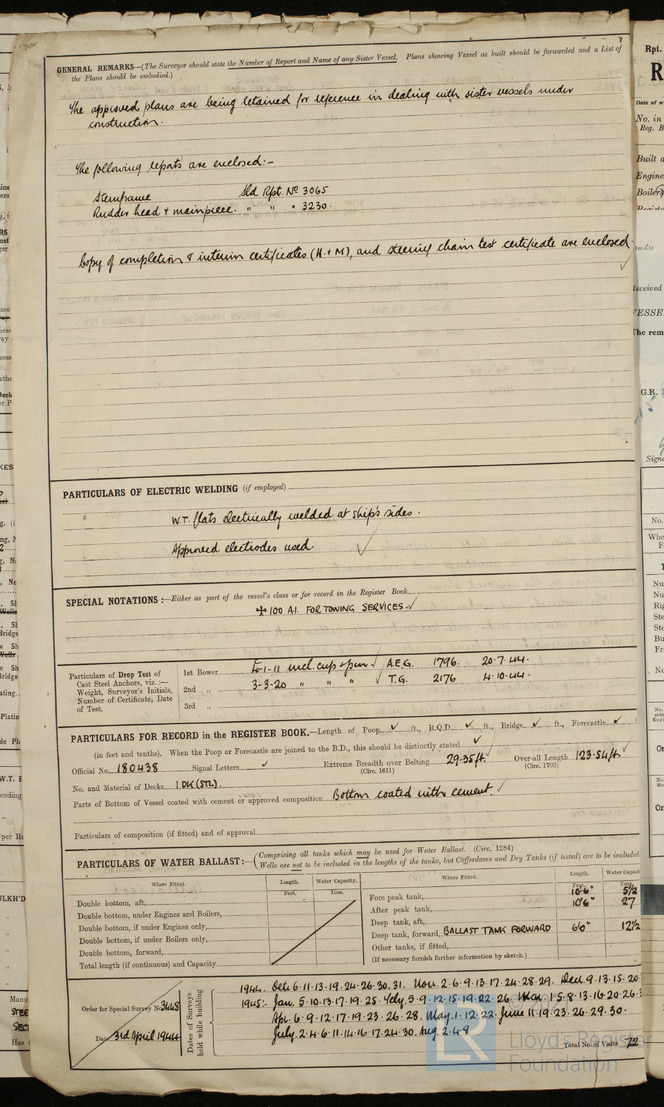 GENERAL REMARKS—(The Surveyor should state the Number of Report and Name of any Sister Vessel. Plans showing Vessel as built should be forwarded and a List of
the Plans should be embodied.)
The approved plans are being retained for reference in dealing with sister vessels under
construction.
The following reports are enclosed:-
Sternframe Sld Rpt. No 3065
Rudder head + mainpiece. " " " 3230.
Copy of completion & interim certificates (H.+M), and steering chain test certificate are enclosed
PARTICULARS OF ELECTRIC WELDING (if employed)
W.T. flats electrically welded at ship's sides.
Approved electrodes used.
SPECIAL NOTATIONS:—Either as part of the vessel's class or for record in the Register Book
✠ 100 A1. FOR TOWING SERVICES.
Particulars of Drop Test of
Cast Steel Anchors, viz.:—
Weight, Surveyor's Initials,
Number of Certificate, Date
of Test.
1st Bower 4-1-11 incl. cup + pin ✓ A.E.G. 1796. 20.7.44.
2nd " 3-3-20 " " " ✓ T.G. 2176 4.10.44.
3rd "
PARTICULARS FOR RECORD in the REGISTER BOOK.—Length of Poop ✓ ft., R.Q.D. ✓ ft., Bridge ✓ ft., Forecastle ✓
(in feet and tenths). When the Poop or Forecastle are joined to the B.D., this should be distinctly stated ✓
Official No. 180438 Signal Letters ✓ Extreme Breadth over Belting 29.35ft. Over-all Length 123.54ft
(Circ. 1611) (Circ. 1703)
No. and Material of Decks 1 DK (STL).
Parts of Bottom of Vessel coated with cement or approved composition Bottom coated with cement.
Particulars of composition (if fitted) and of approval
PARTICULARS OF WATER BALLAST:—(Comprising all tanks which may be used for Water Ballast. (Circ. 1284)
Wells are not to be included in the lengths of the tanks, but Cofferdams and Dry Tanks (if tested) are to be included
Where Fitted. Length. Water Capacity. Where Fitted. Length. Water Capaci
Feet. Tons. Feet. Tons
Double bottom, aft, Fore peak tank, 10'6" 5½
Double bottom, under Engines and Boilers, After peak tank, 10'6" 27
Double bottom, if under Engines only, Deep tank, aft,
Double bottom, if under Boilers only, Deep tank, forward, BALLAST TANK FORWARD 6'0" 12½
Double bottom, forward, Other tanks, if fitted,
Total length (if continuous) and Capacity (If necessary furnish further information by sketch.)
Order for Special Survey No. 3448
Date 3rd April 1944
Dates of Surveys
held while building
1944. Oct. 6.11.13.19.24.26.30.31. Nov. 2.6.9.13.17.24.28.29. Dec. 9.13.15.20
1945:- Jan. 5.10.13.17.19.25. Feby. 3.9.12.15.19.22.26. Mar. 1.5.8.13.16.20.26.
Apl. 6.9.12.17.19.23.26.28. May. 1.12.22. June 11.19.23.26.29.30.
July. 2.4.6.11.14.16.17.24.30. Aug. 2.4.8
Total No. of Visits 72
LR
Lloyd's Register
Foundation